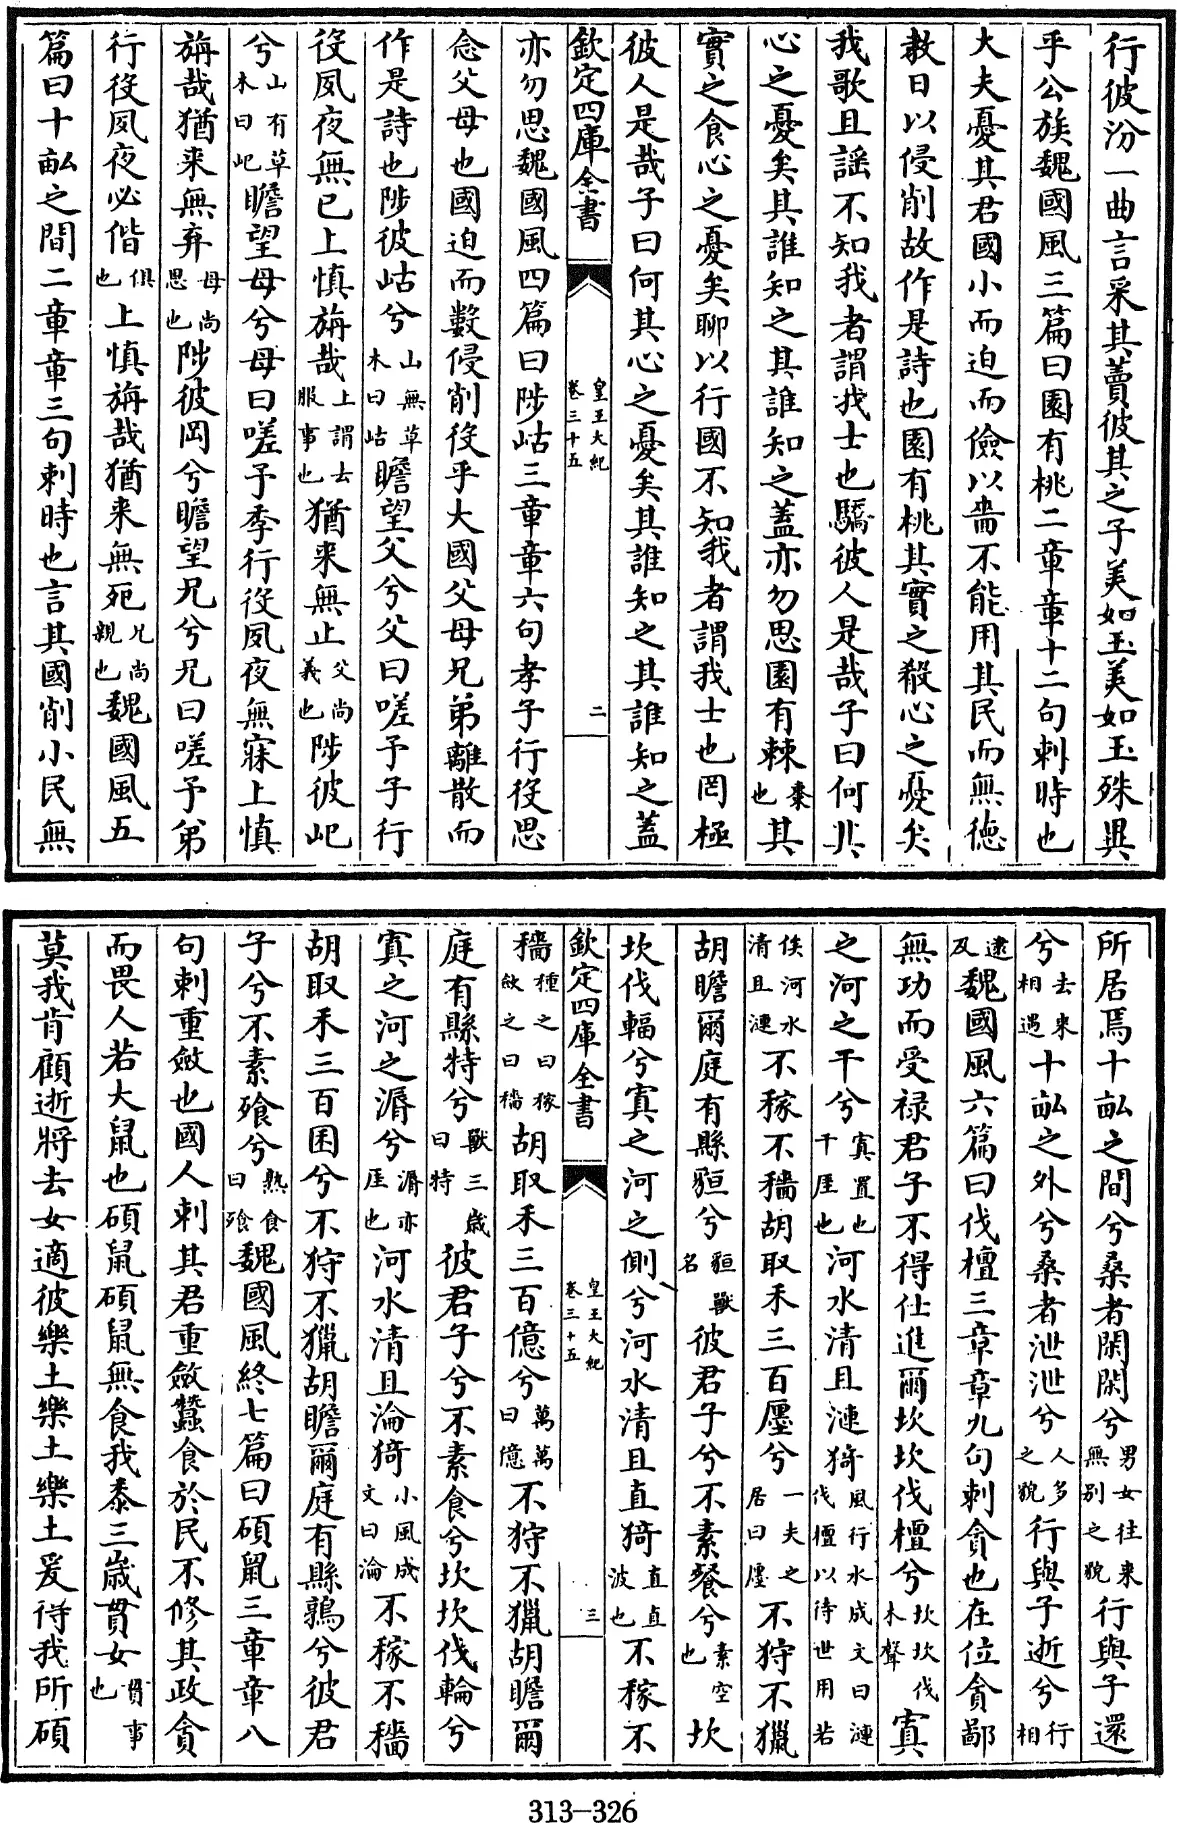 行彼汾一曲言采其藚彼其之子美如玉美如玉殊異
乎公族魏國風三篇曰園有桃二章章十二句刺時也
大夫憂其君國小而迫而儉以嗇不能用其民而無徳
教日以侵削故作是詩也園有桃其實之殽心之憂矣
我歌且謡不知我者謂我士也驕彼人是哉子曰何其
心之憂矣其誰知之其誰知之蓋亦勿思園有棘棗也其
實之食心之憂矣聊以行國不知我者謂我士也罔極
彼人是哉子曰何其心之憂矣其誰知之其誰知之蓋
欽定四庫全書 皇王大紀卷三十五 二
亦勿思魏國風四篇曰陟岵三章章六句孝子行役思
念父母也國迫而數侵削役乎大國父母兄弟離散而
作是詩也陟彼岵兮山無草木曰岵瞻望父兮父曰嗟予子行
役夙夜無已上慎旃哉上謂去服事也猶来無止父尚義也陟彼屺
兮山有草木曰屺瞻望母兮母曰嗟予季行役夙夜無寐上慎
旃哉猶来無弃母尚思也陟彼岡兮瞻望兄兮兄曰嗟予弟
行役夙夜必偕俱也上慎旃哉猶来無死兄尚親也魏國風五
篇曰十畝之間二章章三句刺時也言其國削小民無
所居焉十畝之間兮桑者閑閑兮男女往来無别之貌行與子還
兮去来相遇十畝之外兮桑者泄泄兮人多之貌行與子逝兮行相
逮及魏國風六篇曰伐檀三章章九句刺貪也在位貪鄙
無功而受禄君子不得仕進爾坎坎伐檀兮坎坎伐木聲寘
之河之干兮寘置也干厓也河水清且漣猗風行水成文曰漣伐檀以待世用若
俟河水清且漣不稼不穡胡取禾三百廛兮一夫之居曰廛不狩不獵
胡瞻爾庭有縣貆兮貆獸名彼君子兮不素餐兮素空也坎
坎伐輻兮寘之河之側兮河水清且直猗直直波也不稼不
欽定四庫全書 皇王大紀卷三十五 三
穡種之曰稼斂之曰穡胡取禾三百億兮萬萬曰億不狩不獵胡瞻爾
庭有縣特兮獸三歲曰特彼君子兮不素食兮坎坎伐輪兮
寘之河之漘兮漘亦厓也河水清且淪猗小風成文曰淪不稼不穡
胡取禾三百囷兮不狩不獵胡瞻爾庭有縣鶉兮彼君
子兮不素飱兮熟食曰飱魏國風終七篇曰碩鼠三章章八
句刺重斂也國人刺其君重斂蠶食於民不修其政貪
而畏人若大鼠也碩鼠碩鼠無食我黍三歲貫女貫事也
莫我肯顧逝將去女適彼樂土樂土樂土爰得我所碩
313-326